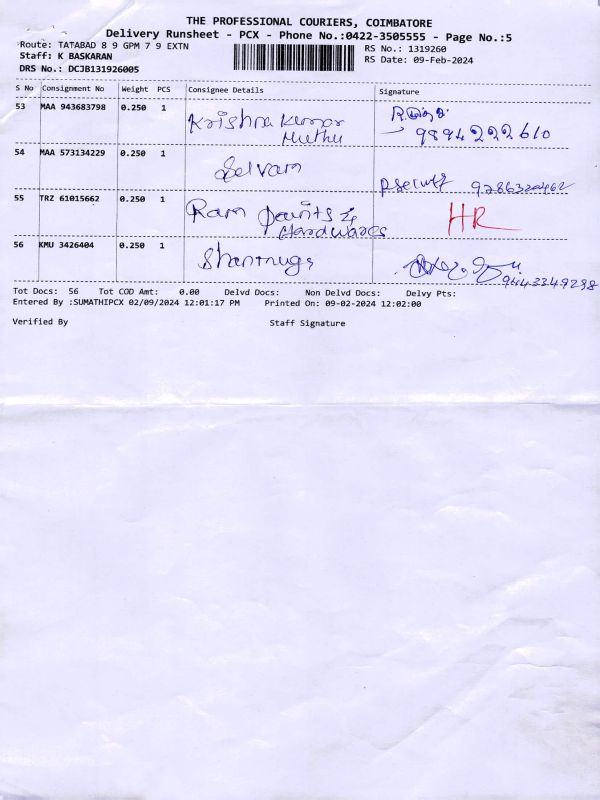 THE PROFESSIONAL COURIERS, COIMBATORE
Delivery Runsheet - PCX - Phone No.:0422-3505555 - Page No.:5
Route: TATABAD 8 9 GPM 7 9 EXTN
RS No.: 1319260
Staff: K BASKARAN
RS Date: 09-Feb-2024
DRS No.: DCJB131926005
S No Consignment No Weight PCS Consignee Details Signature
53 MAA 943683798 0.250 1 Krishna Kumar
Muthu
9894222610
54 MAA 573134229 0.250 1 Selvam
55 TRZ 61015662 0.250 1 Ram paints &
Hardwares
HR
56 KMU 3426404 0.250 1 Shanmuga
9443349298
Tot Docs: 56 Tot COD Amt: 0.00 Delvd Docs: Non Delvd Docs: Delvy Pts:
Entered By :SUMATHIPCX 02/09/2024 12:01:17 PM Printed On: 09-02-2024 12:02:00
Verified By Staff Signature